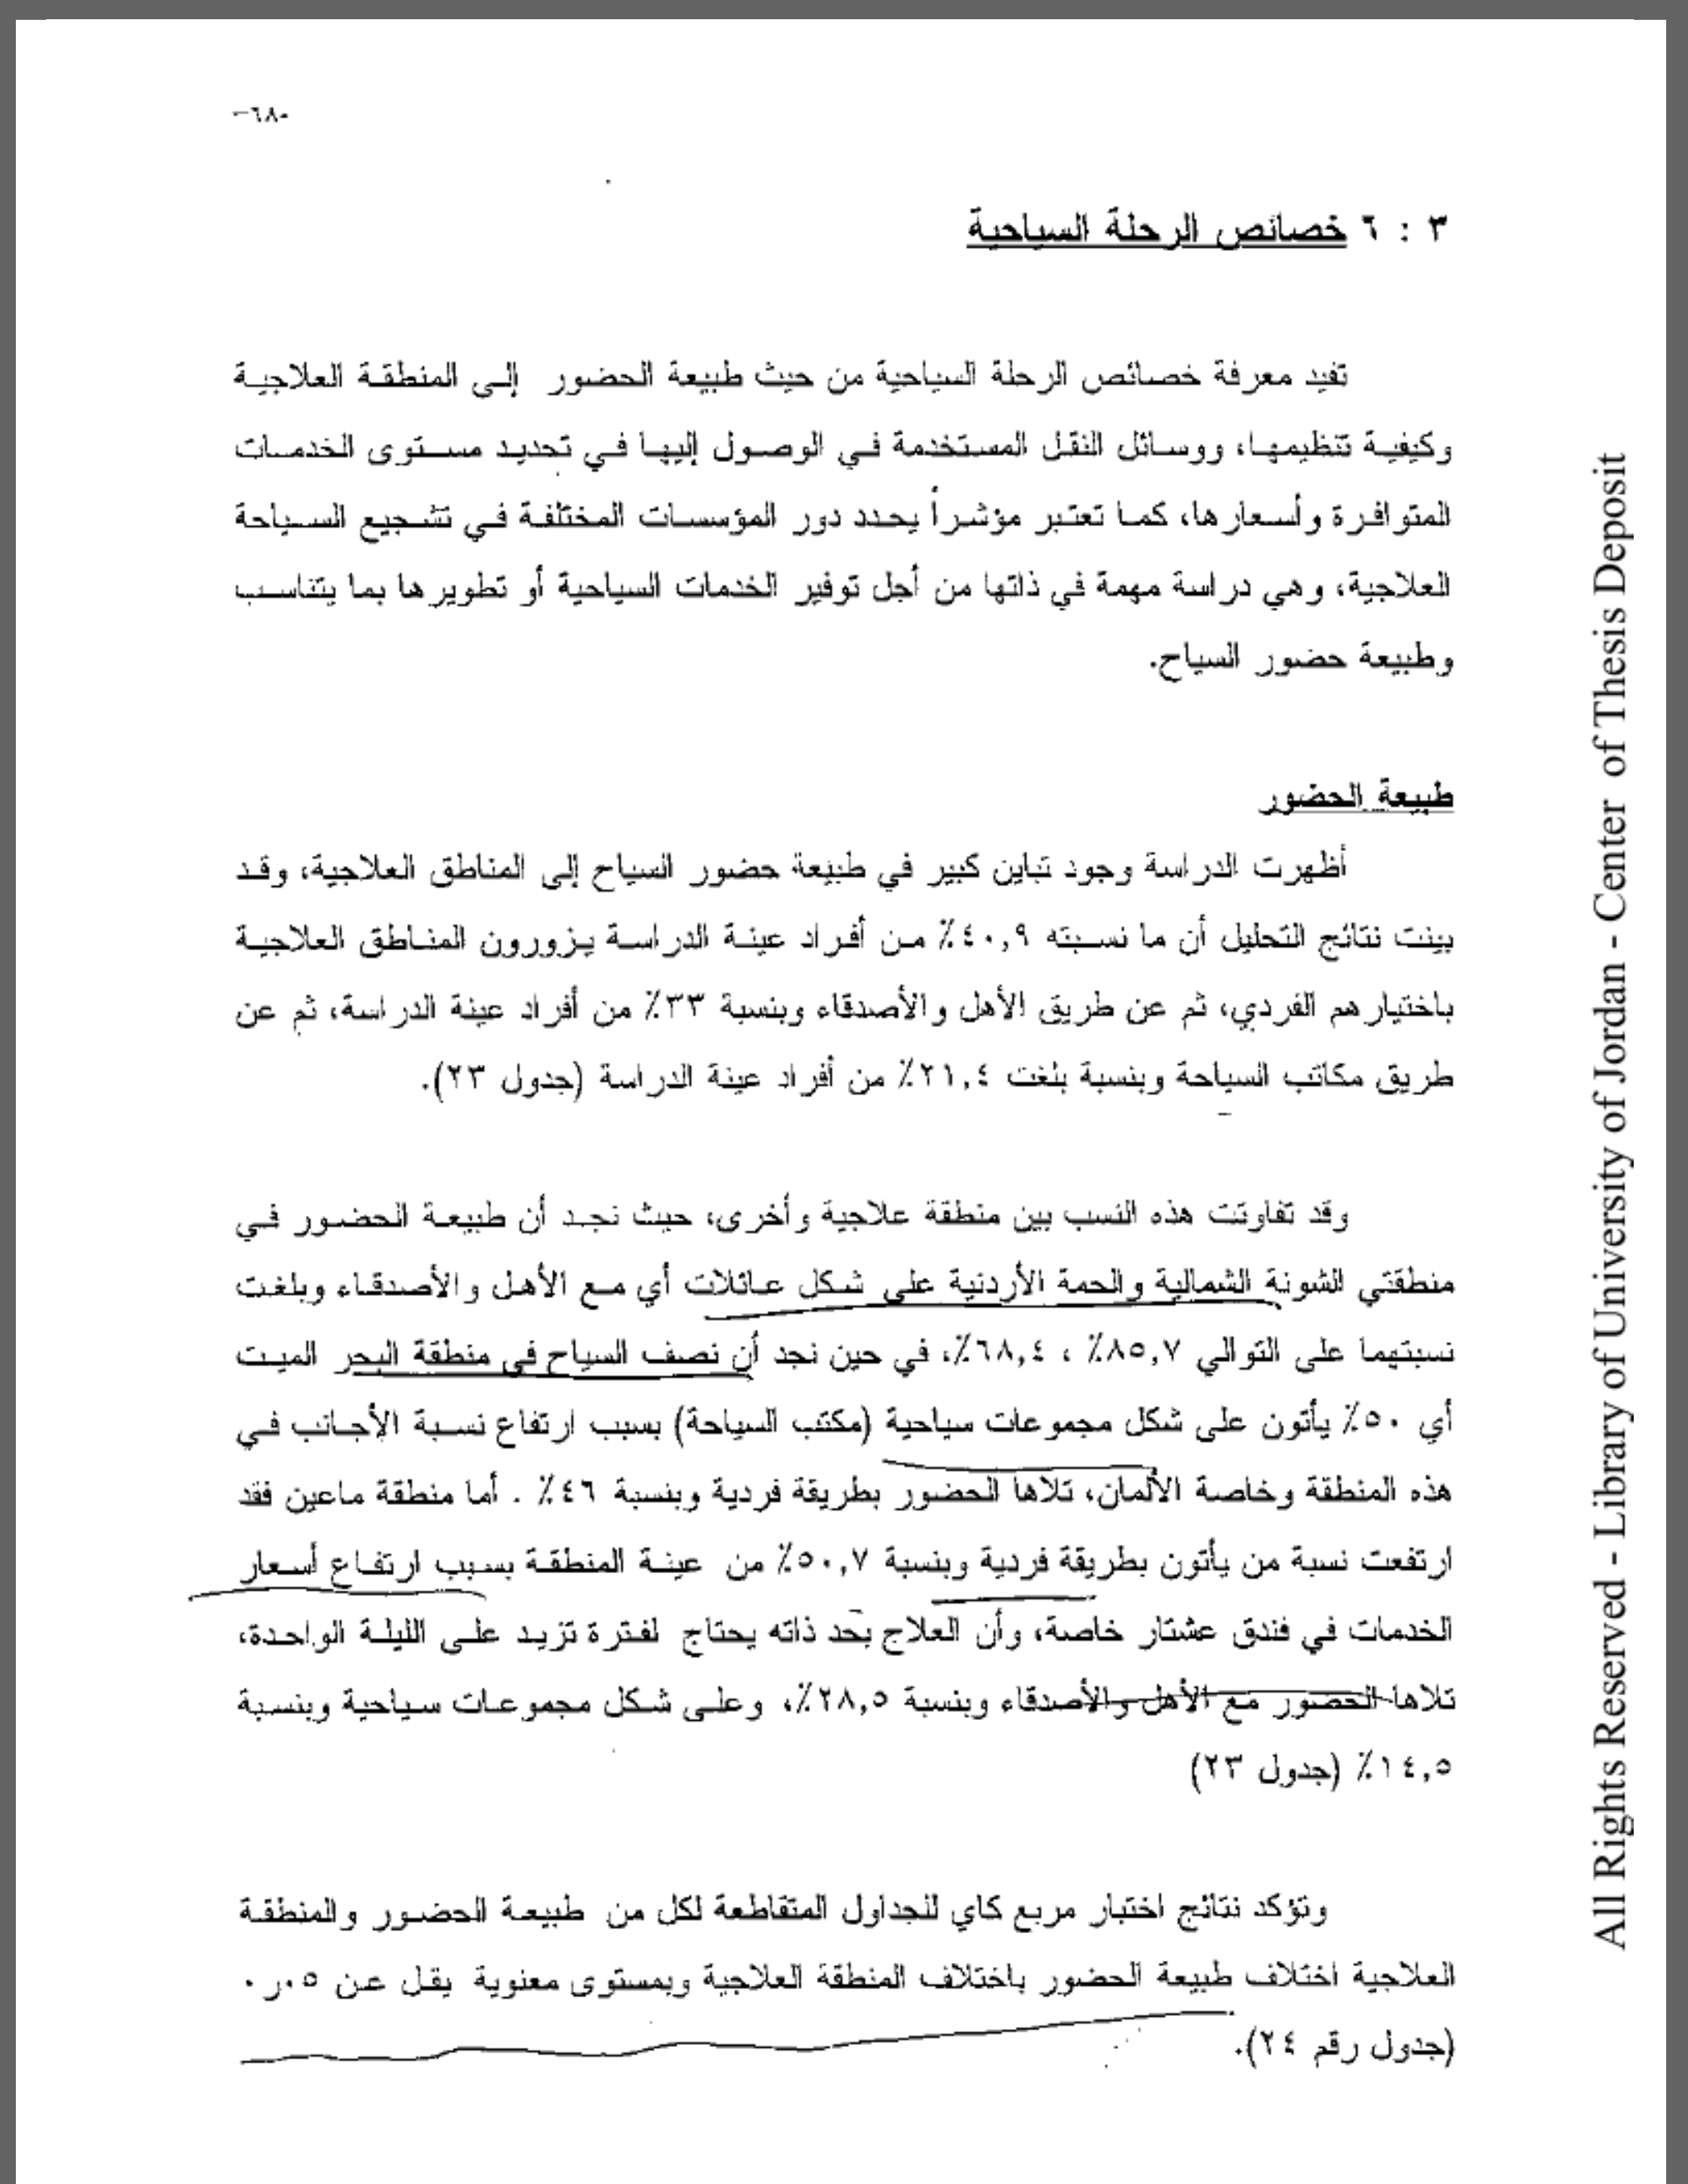 -٦٨-
٣ : ٦ خصائص الرحلة السياحية
تفيد معرفة خصائص الرحلة السياحية من حيث طبيعة الحضور إلى المنطقة العلاجية
وكيفية تنظيمها، ووسائل النقل المستخدمة في الوصول إليها في تحديد مستوى الخدمات
المتوافرة وأسعارها، كما تعتبر مؤشراً يحدد دور المؤسسات المختلفة في تشجيع السياحة
العلاجية، وهي دراسة مهمة في ذاتها من أجل توفير الخدمات السياحية أو تطويرها بما يتناسب
وطبيعة حضور السياح.
طبيعة الحضور
أظهرت الدراسة وجود تباين كبير في طبيعة حضور السياح إلى المناطق العلاجية، وقد
بينت نتائج التحليل أن ما نسبته ٤٠,٩٪ من أفراد عينة الدراسة يزورون المناطق العلاجية
باختيارهم الفردي، ثم عن طريق الأهل والأصدقاء وبنسبة ٣٣٪ من أفراد عينة الدراسة، ثم عن
طريق مكاتب السياحة وبنسبة بلغت ٢١,٤٪ من أفراد عينة الدراسة (جدول ٢٣).
وقد تفاوتت هذه النسب بين منطقة علاجية وأخرى، حيث نجد أن طبيعة الحضور في
منطقتي الشونة الشمالية والحمة الأردنية على شكل عائلات أي مع الأهل والأصدقاء وبلغت
نسبتهما على التوالي ٨٥,٧٪ ، ٦٨,٤٪، في حين نجد أن نصف السياح في منطقة البحر الميت
أي ٥٠٪ يأتون على شكل مجموعات سياحية (مكتب السياحة) بسبب ارتفاع نسبة الأجانب في
هذه المنطقة وخاصة الألمان، تلاها الحضور بطريقة فردية وبنسبة ٤٦٪ . أما منطقة ماعين فقد
ارتفعت نسبة من يأتون بطريقة فردية وبنسبة ٥٠,٧٪ من عينة المنطقة بسبب ارتفاع أسعار
الخدمات في فندق عشتار خاصة، وأن العلاج بحد ذاته يحتاج لفترة تزيد على الليلة الواحدة،
تلاها الحضور مع الأهل والأصدقاء وبنسبة ٢٨,٥٪، وعلى شكل مجموعات سياحية وبنسبة
١٤,٥٪ (جدول ٢٣)
وتؤكد نتائج اختبار مربع كاي للجداول المتقاطعة لكل من طبيعة الحضور والمنطقة
العلاجية اختلاف طبيعة الحضور باختلاف المنطقة العلاجية وبمستوى معنوية يقل عن ٠٥ر٠
(جدول رقم ٢٤).
All Rights Reserved - Library of University of Jordan - Center of Thesis Deposit